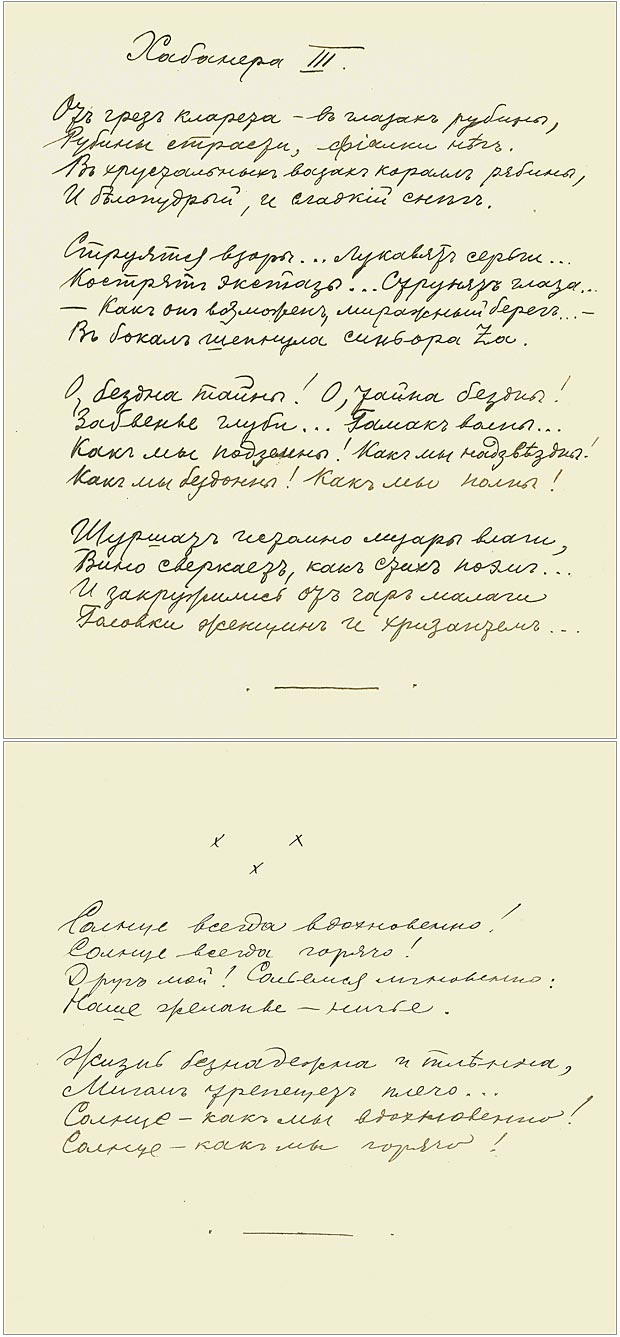 Хабанера III.
Отъ грезъ кларета – въ глазахъ рубины,
Рубины страсти, фіалки нѣгъ.
Въ хрустальныхъ вазахъ кораллъ рябины,
И бѣлопудрый, и сладкій снѣгъ.
Струятся взоры... Лукавятъ серьги...
Кострятъ экстазы... Струнятъ глаза...
– Какъ онъ возможенъ, миражный берегъ...–
Въ бокалъ шепнула синьора Za.
О, бездна тайны! О, тайна бездны!
Забвенье глуби... Гамакъ волны...
Какъ мы подземны! Какъ мы надзвѣздны!
Какъ мы бездонны! Какъ мы полны!
Шуршатъ истомно муары влаги,
Вино сверкаетъ, какъ стихъ поэмъ...
И закружились отъ чаръ малаги
Головки женщинъ и хризантемъ...
x x
x
Солнце всегда вдохновенно!
Солнце всегда горячо!
Другъ мой! Сольемся мгновенно:
Наше желанье – ничье.
Жизнь безнадежна и тлѣнна,
Мигомъ трепещетъ плечо...
Солнце – какъ мы вдохновенно!
Солнце – какъ мы горячо!